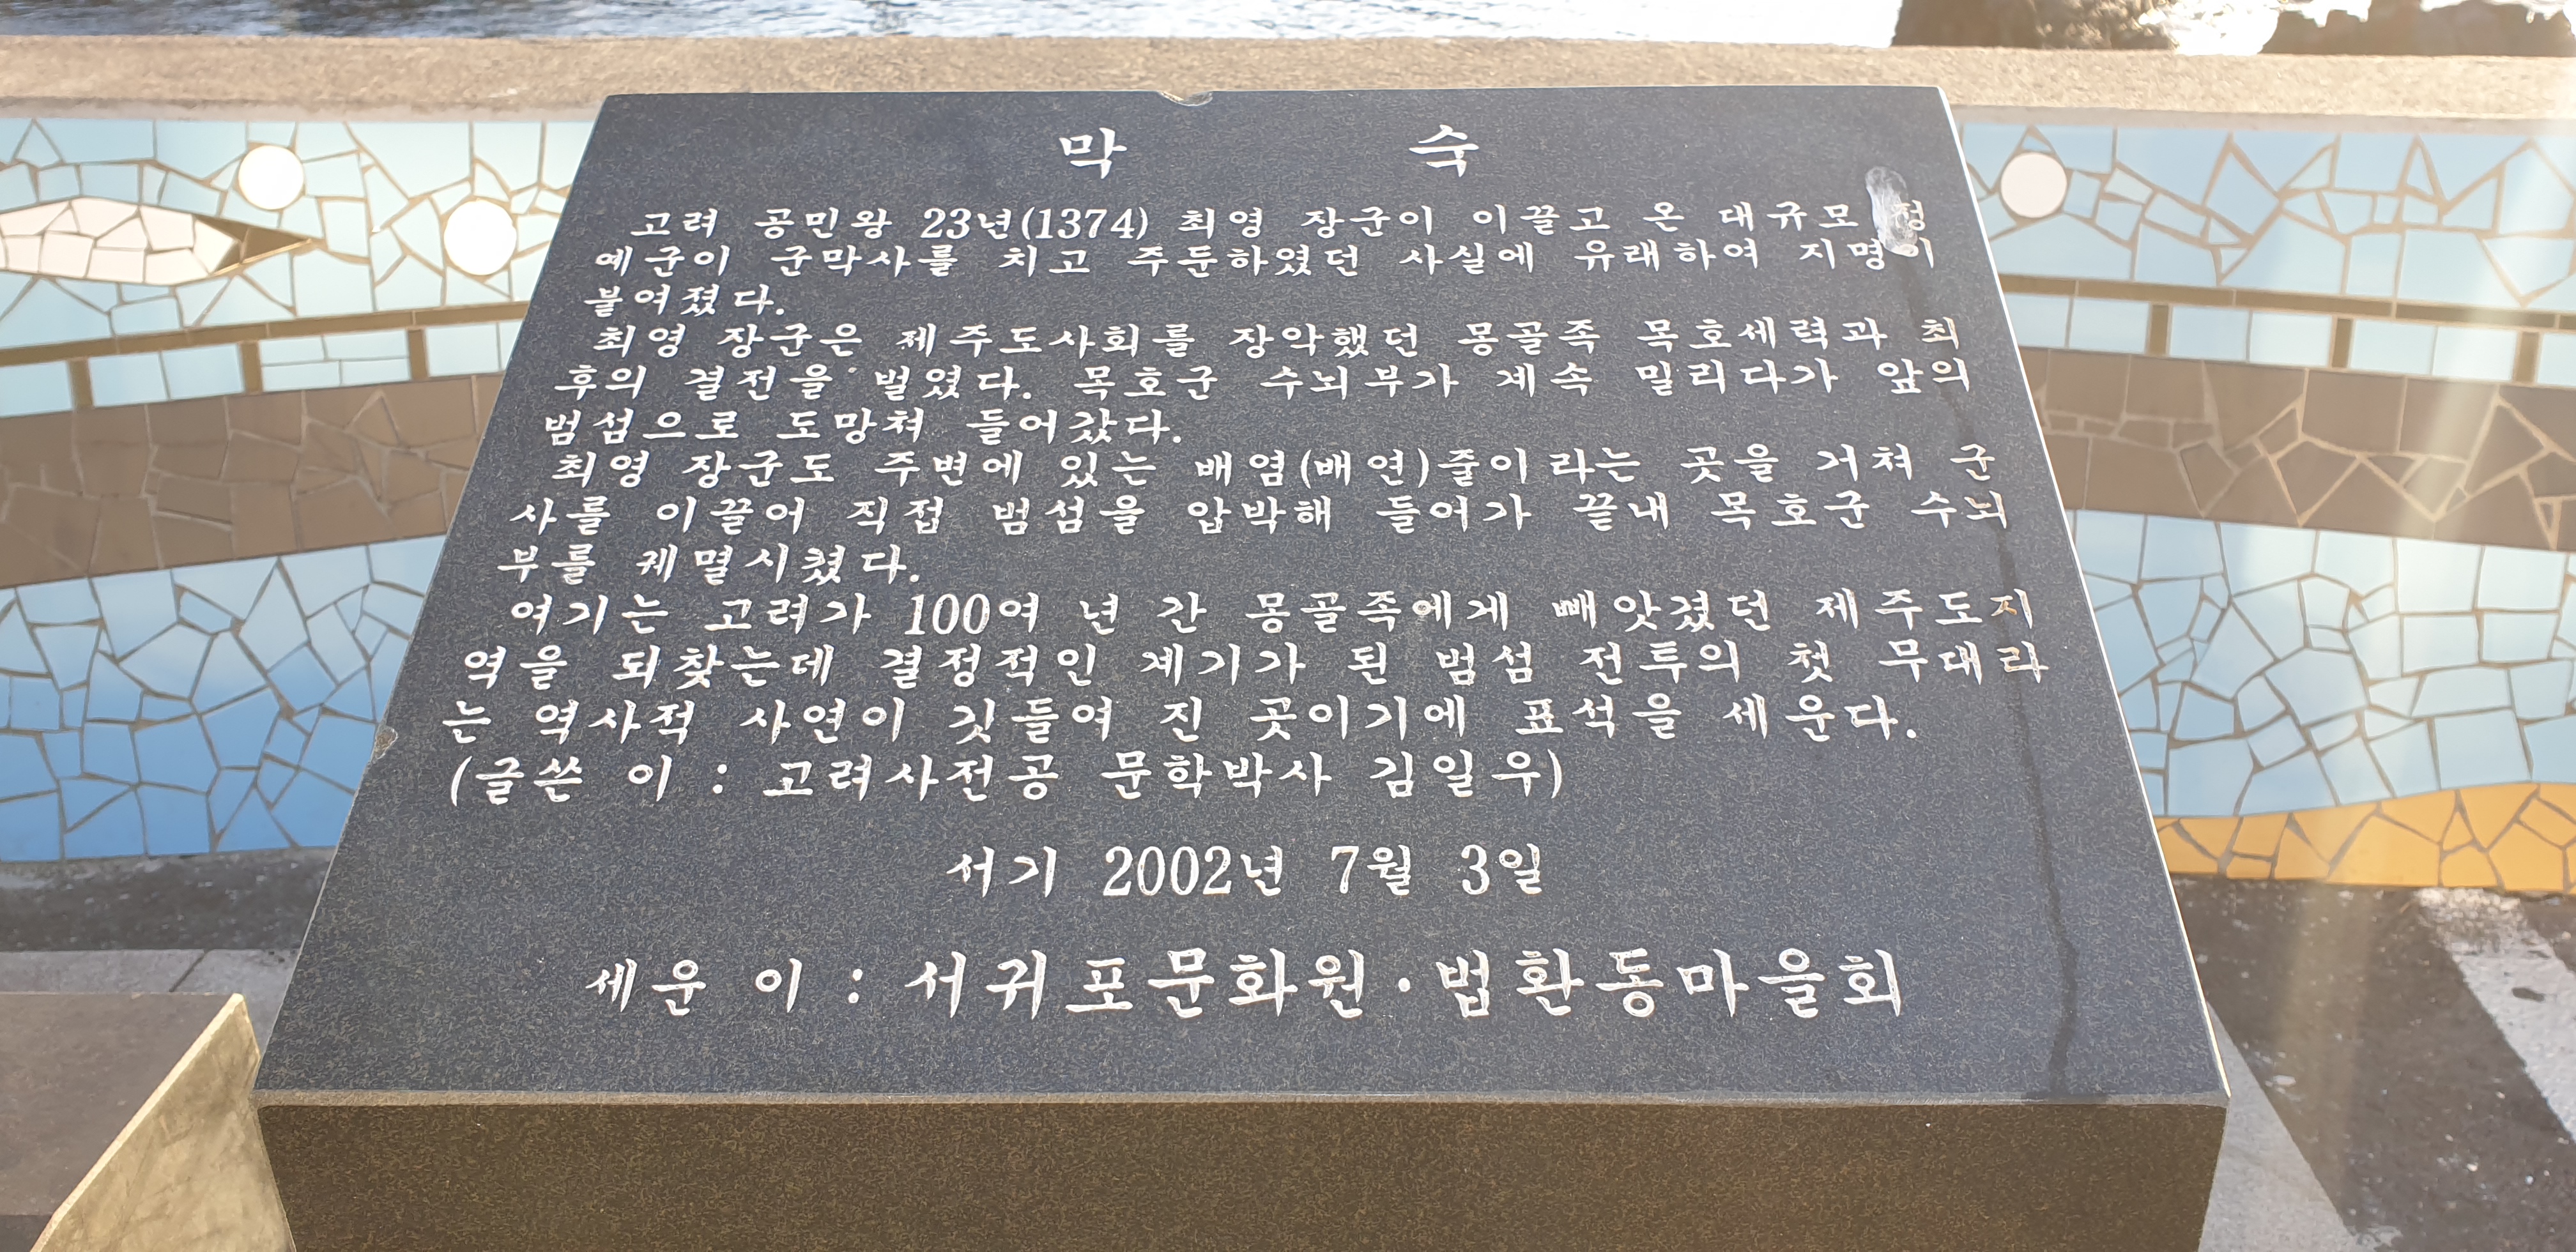 막 숙
고려 공민왕 23년(1374) 최영 장군이 이끌고 온 대규모 정
예군이 군막사를 치고 주둔하였던 사실에 유래하여 지명이
붙여졌다.
최영 장군은 제주도사회를 장악했던 몽골족 목호세력과 최
후의 결전을 벌였다. 목호군 수뇌부가 계속 밀리다가 앞의
범섬으로 도망쳐 들어갔다.
최영 장군도 주변에 있는 배염(배연)줄이라는 곳을 거쳐 군
사를 이끌어 직접 범섬을 압박해 들어가 끝내 목호군 수뇌
부를 궤멸시켰다.
여기는 고려가 100여 년 간 몽골족에게 빼앗겼던 제주도지
역을 되찾는데 결정적인 계기가 된 범섬 전투의 첫 무대라
는 역사적 사연이 깃들여 진 곳이기에 표석을 세운다.
(글쓴 이 : 고려사전공 문학박사 김일우)
서기 2002년 7월 3일
세운 이 : 서귀포문화원·법환동마을회